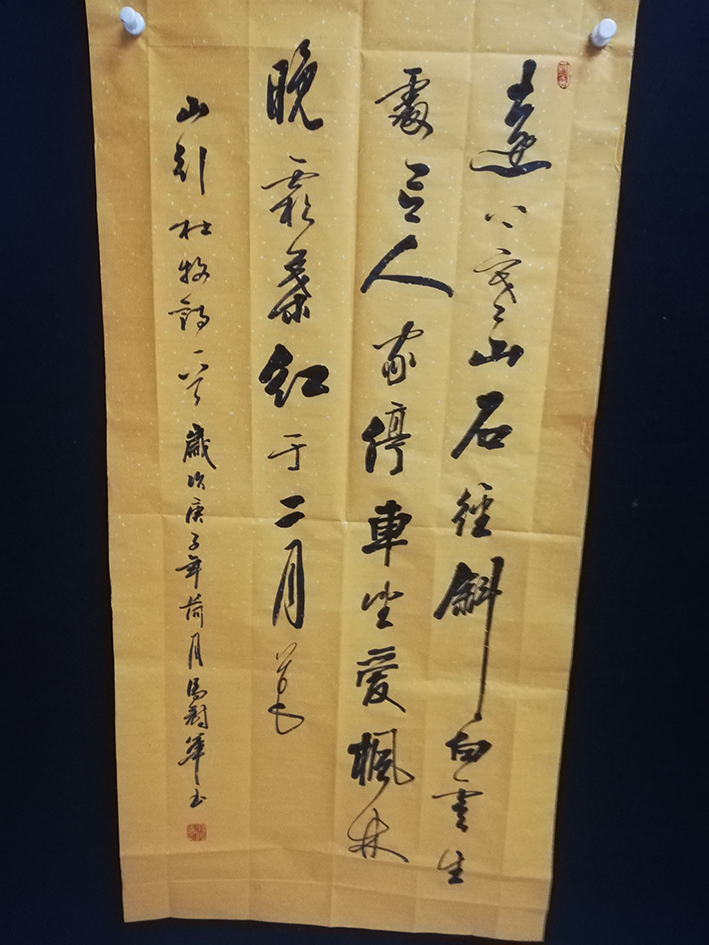 遠上寒山石徑斜白雲生
處有人家停車坐愛楓林
晚霜葉紅于二月花
山行杜牧詩一首歲次庚子年荷月華书